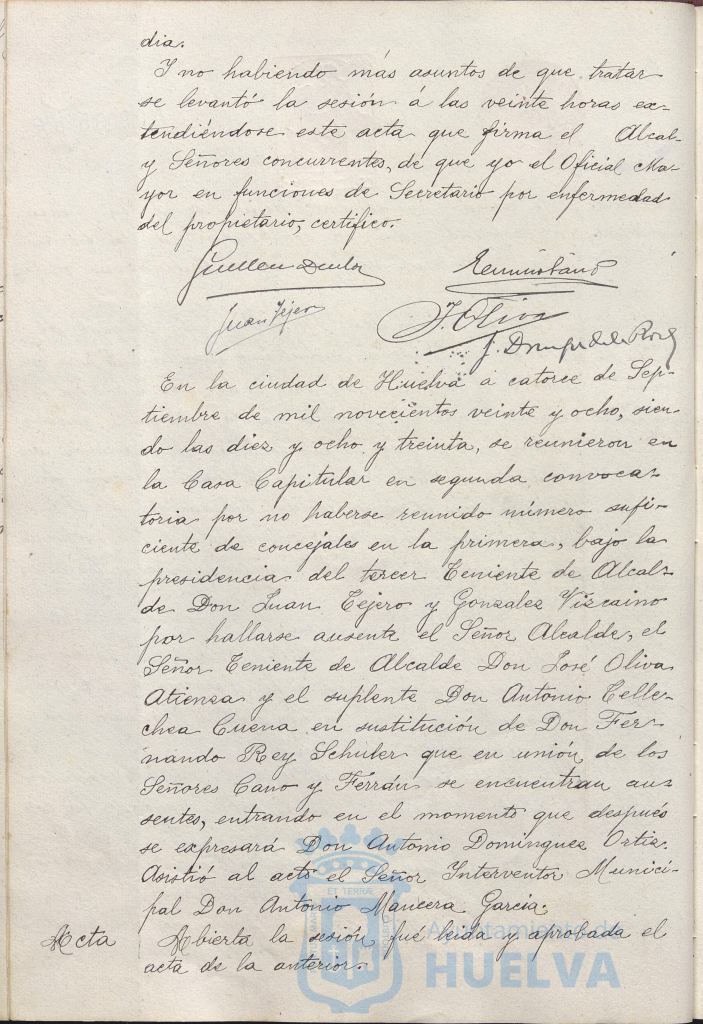 dia.
Y no habiendo más asuntos de que tratar
se levantó la sesión á las veinte horas ex-
tendiéndose este acta que firma el Alcal-
y Señores concurrentes, de que yo el Oficial Ma-
yor en funciones de Secretario por enfermedad
del propietario, certifico.
Juan Tejero
J. Oliva
En la ciudad de Huelva a catorce de Sep-
tiembre de mil novecientos veinte y ocho, sien-
do las diez y ocho y treinta, se reunieron en
la Casa Capitular en segunda convoca-
toria por no haberse reunido número sufi-
ciente de concejales en la primera, bajo la
presidencia del tercer Teniente de Alcal-
de Don Juan Tejero y Gonzalez Vizcaino
por hallarse ausente el Señor Alcalde, el
Señor Teniente de Alcalde Don José Oliva
Atienza y el suplente Don Antonio Telle-
chea Cuena en sustitución de Don Fer-
nando Rey Schuler que en unión de los
Señores Cano y Ferrán se encuentran au-
sentes, entrando en el momento que después
se expresará Don Antonio Dominguez Ortiz.
Asistió al acto el Señor Interventor Munici-
pal Don Antonio Mancera Garcia.
Acta Abierta la sesión fue leida y aprobada el
acta de la anterior.
Ayuntamiento de
HUELVA